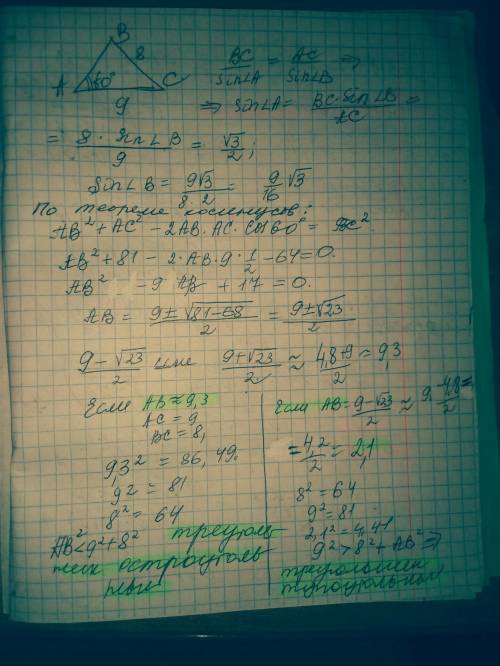 B
A 60° 8 C
9
BC/sin∠A = AC/sin∠B ⇒
⇒ sin∠A = BC·sin∠B/AC =
= 8·sin∠B/9 = √3/2;
sin∠B = 9√3/8·2 = 9/16 √3
По теореме косинусов:
AB² + AC² - 2AB·AC·cos60° = BC².
AB² + 81 - 2·AB·9·1/2 - 64 = 0.
AB² - 9 AB + 17 = 0.
AB = 9±√81-68/2 = 9±√23/2
9-√23/2 или 9+√23/2 ≈ 4,8+9/2 = 9,3
Если AB ≈ 9,3
AC = 9
BC = 8,
9,3² = 86,49.
9² = 81
8² = 64
AB² < 9² + 8² треуголь
ник остроуголь
ный
Если AB = 9-√23/2 ≈ 9-4,8/2 =
= 4,2/2 = 2,1
8² = 64
9² = 81
2,1² = 4,41
9² > 8² + AB² ⇒
треугольник
тупоугольный